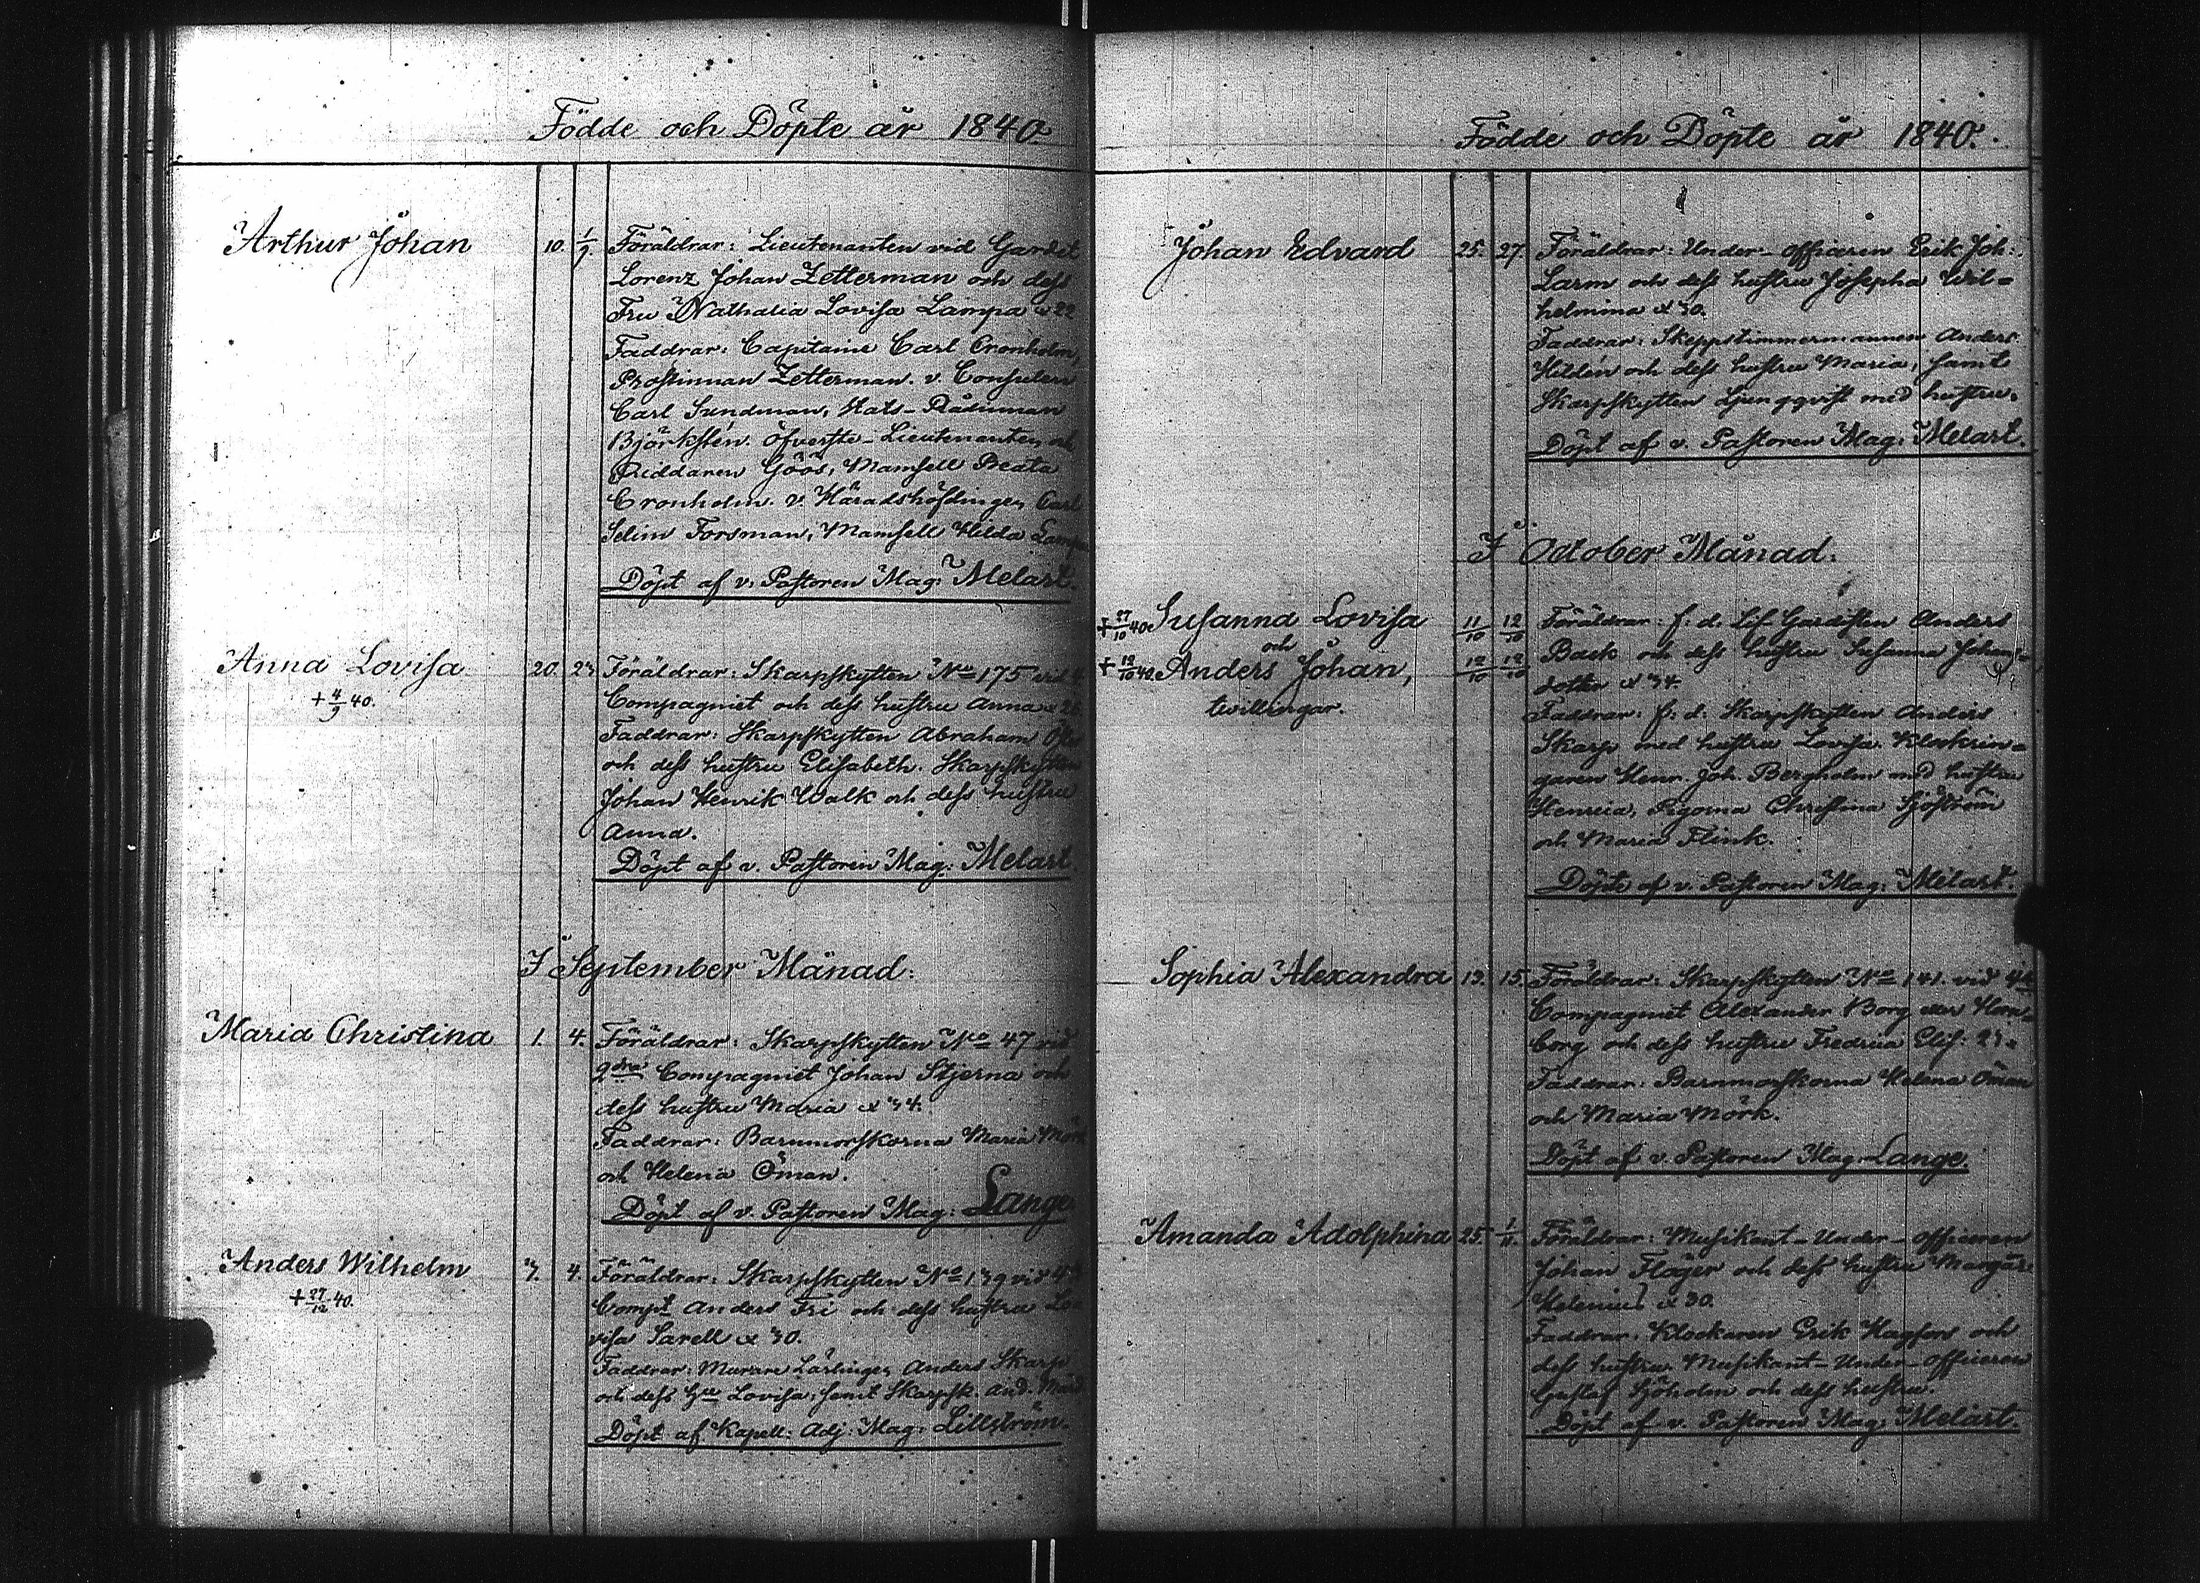 Födde och Döpte år 1840.
Arthur Johan 10. 1/9. Föräldrar: Lieutenanten vid Gardet
Lorenz Johan Zetterman och dess
Fru Nathalia Lovisa Lampa x 22
Faddrar: Capitaine Carl Cronholm,
Prostinnan Zetterman. v. Consulen
Carl Sundman, Råduman
Björkstén. Öfverste-Lieutenanten och
Riddaren Göös, Mamsell Beata
Cronholm. v. Häradshöfdingen Carl
Selim Forsman, Mamsell Hilda Lampa
Döpt af v. Pastoren Mag: Melart.
Anna Lovisa 20. 23 Föräldrar: Skarpskytten No 175 vid
+ 4/9 40.
Compagniet och dess hustru Anna x
Faddrar: Skarpskytten Abraham
och dess hustru Elisabeth. Skarpskytten
Johan Henrik Walk och dess hustru
Anna.
Döpt af v. Pastoren Mag: Melart
I September Månad:
Maria Christina 1. 4. Föräldrar: Skarpskytten No 47 vid
2dra Compagniet Johan Stjerna och
dess hustru Maria x 34.
Faddrar: Barnmorskorna Maria Mörk
och Helena Öman.
Döpt af v. Pastoren Mag: Lange
Anders Wilhelm 3. 4. Föräldrar: Skarpskytten No 139 vid 4
+ 27/12 40.
Compt Anders Fri och dess hustru Lo
visa Sarell x 30.
Faddrar: Murare Lärlingen Anders Skarp
och dess Hu Lovisa, samt Skarpsk. And.
Döpt af Kapell: Adj: Mag: Lillström.
Födde och Döpte år 1840.
Johan Edvard 25. 27. Föräldrar: Under-officeren Erik Joh:
Larm och dess hustru Josepha Wil=
helmina x 30.
Faddrar: Skeppstimmermannen Anders
Hildén och dess hustru Maria, samt
Skarpskytten Ljungqvist med hustru.
Döpt af v. Pastoren Mag: Melart.
I October Månad:
+ 27/10 40. Susanna Lovisa 11/10 12/10 Föräldrar: f: d. Lif Gardisten Anders
och
+ 12/10 40. Anders Johan, 12/10 12/10 Back och dess hustru Susanna Johans=
dotter x 34.
tvillingar.
Faddrar: f: d: Skarpskytten Anders
Skarp med hustru Lovisa. Klockrin=
garen Henr. Joh. Bergholm med hustru
Henrica, Pigorna Christina Sjöström
och Maria Flink.
Döpte af v. Pastoren Mag: Melart.
Sophia Alexandra 13. 15. Föräldrar: Skarpskytten No 141. vid 4de
Compagniet Alexander Borg eller Horn=
borg och dess hustru Fredrica Elis: 23.
Faddrar: Barnmorskorna Helena Öman
och Maria Mörk.
Döpt af v. Pastoren Mag. Lange.
Amanda Adolphina 25. 1/11. Föräldrar: Musikant-Under-officeren
Johan Fläger och dess hustru Margar:
Helenius x 30.
Faddrar: Klockaren Erik Hagfors och
dess hustru Musikant-Under-officeren
Gustaf Sjöholm och dess hustru.
Döpt af v. Pastoren Mag: Melart.